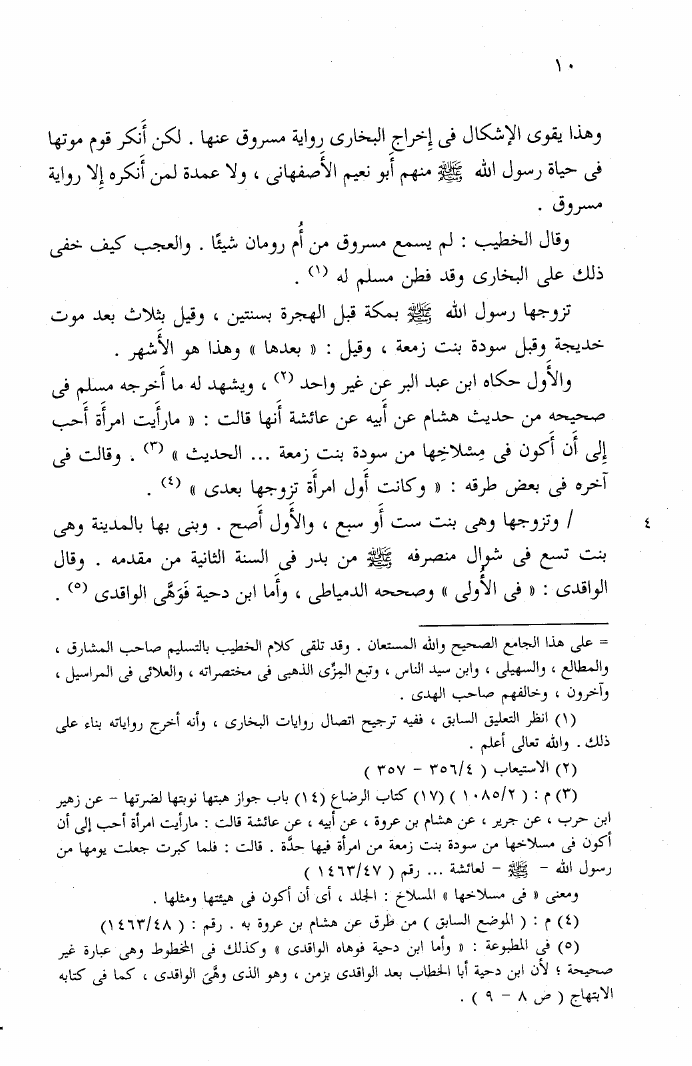 ١٠
وهذا يقوى الإشكال فى إخراج البخارى رواية مسروق عنها . لكن أنكر قوم موتها
فى حياة رسول الله ﷺ منهم أبو نعيم الأصفهانى ، ولا عمدة لمن أنكره إلا رواية
مسروق .
وقال الخطيب : لم يسمع مسروق من أُم رومان شيئًا . والعجب كيف خفى
ذلك على البخارى وقد فطن مسلم له (١) .
تزوجها رسول الله ﷺ بمكة قبل الهجرة بسنتين ، وقيل بثلاث بعد موت
خديجة وقبل سودة بنت زمعة ، وقيل : « بعدها » وهذا هو الأشهر .
والأول حكاه ابن عبد البر عن غير واحد (٢) ، ويشهد له ما أخرجه مسلم فى
صحيحه من حديث هشام عن أبيه عن عائشة أنها قالت : « مارأيت امرأة أحب
إلى أن أكون فى مِسْلاخِها من سودة بنت زمعة ... الحديث » (٣) . وقالت فى
آخره فى بعض طرقه : « وكانت أول امرأة تزوجها بعدى » (٤) .
/ وتزوجها وهى بنت ست أو سبع ، والأول أصح . وبنى بها بالمدينة وهى ٤
بنت تسع فى شوال منصرفه ﷺ من بدر فى السنة الثانية من مقدمه . وقال
الواقدى : « فى الأُولى » وصححه الدمياطى ، وأما ابن دحية فَوَهَّى الواقدى (٥) .
= على هذا الجامع الصحيح والله المستعان . وقد تلقى كلام الخطيب بالتسليم صاحب المشارق ،
والمطالع ، والسهيلى ، وابن سيد الناس ، وتبع المِزِّى الذهبى فى مختصراته ، والعلائى فى المراسيل ،
وآخرون ، وخالفهم صاحب الهدى .
(١) انظر التعليق السابق ، ففيه ترجيح اتصال روايات البخارى ، وأنه أخرج رواياته بناء على
ذلك . والله تعالى أعلم .
(٢) الاستيعاب ( ٤/٣٥٦ – ٣٥٧ )
(٣) م : ( ٢/١٠٨٥ ) (١٧) كتاب الرضاع (١٤) باب جواز هبتها نوبتها لضرتها – عن زهير
ابن حرب ، عن جرير ، عن هشام بن عروة ، عن أبيه ، عن عائشة قالت : مارأيت امرأة أحب إلى أن
أكون فى مسلاخها من سودة بنت زمعة من امرأة فيها حدَّة . قالت : فلما كبرت جعلت يومها من
رسول الله – ﷺ – لعائشة ... رقم ( ٤٧/١٤٦٣ )
ومعنى « فى مسلاخها » المسلاخ : الجلد ، أى أن أكون فى هيئتها ومثلها .
(٤) م : ( الموضع السابق ) من طرق عن هشام بن عروة به . رقم : ( ٤٨/١٤٦٣ )
(٥) فى المطبوعة : « وأما ابن دحية فوهاه الواقدى » وكذلك فى المخطوط وهى عبارة غير
صحيحة ؛ لأن ابن دحية أبا الخطاب بعد الواقدى بزمن ، وهو الذى وهَّىَ الواقدى ، كما فى كتابه
الابتهاج ( ص ٨ – ٩ ) .